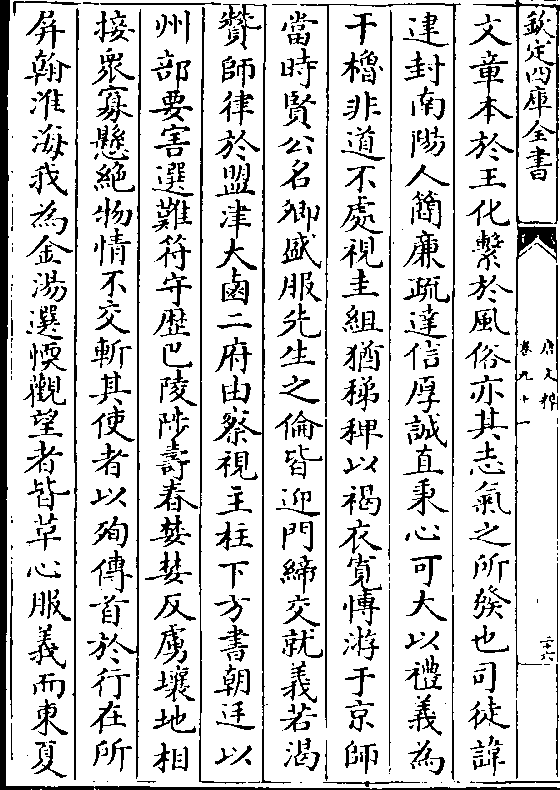 欽定四庫全書
唐文粹
卷九十一
二六
文章本於王化繫於風俗亦其志氣之所發也司徒諱
建封南陽人簡廉疏達信厚誠直秉心可大以禮義為
干櫓非道不處視圭組猶稊稗以褐衣寛慱游于京師
當時賢公名卿盛服先生之倫皆迎門締交就義若渴
贊師律於盟津大鹵二府由察視主柱下方書朝廷以
州部要害選難符守歴巴陵陟壽春婪婪反虜壤地相
接衆寡懸絶物情不交斬其使者以殉傳首於行在所
屛翰淮海我為金湯選愞觀望者皆革心服義而東夏